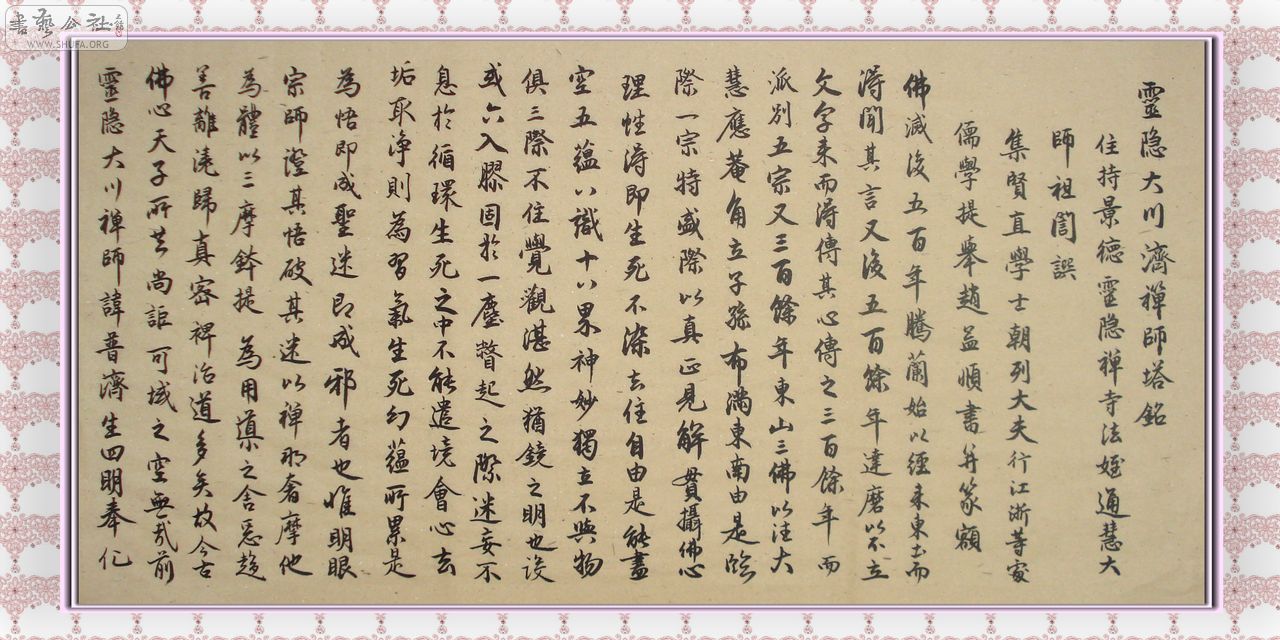 靈隐大川濟禅師塔銘
住持景德靈隐禅寺法姪通慧大
師祖誾誤
集賢直學士朝列大夫行江浙等處
儒學提舉趙孟頫書并篆額
佛滅後五百年騰蘭始以經来東土而
得聞其言又後五百餘年達磨以不立
文字来而得傳其心傳之三百餘年而
派别五宗又三百餘年東山三佛以法大
慧應菴角立子孫布滿東南由是臨
際一宗特盛際以真正見解貫攝佛心
理性得即生死不染去住自由是能盡
空五蕴八識十八界神妙獨立不與物
俱三際不住覺觀湛然猶鏡之明也設
或六入膠固於一塵瞥起之際迷妄不
息於循環生死之中不能遣境會心去
垢取淨則為習氣生死幻蕴所累是
為悟即成聖迷即成邪者也惟明眼
宗師澄其悟破其迷以禅那奢摩他
為體以三摩鉢提為用導之舍惡趍
善離澆歸真密裨治道多矣故今古
佛心天子所共尚詎可域之空無哉前
靈隐大川禅師諱普濟生四明奉化
書藝公社
WWW.SHUFA.ORG